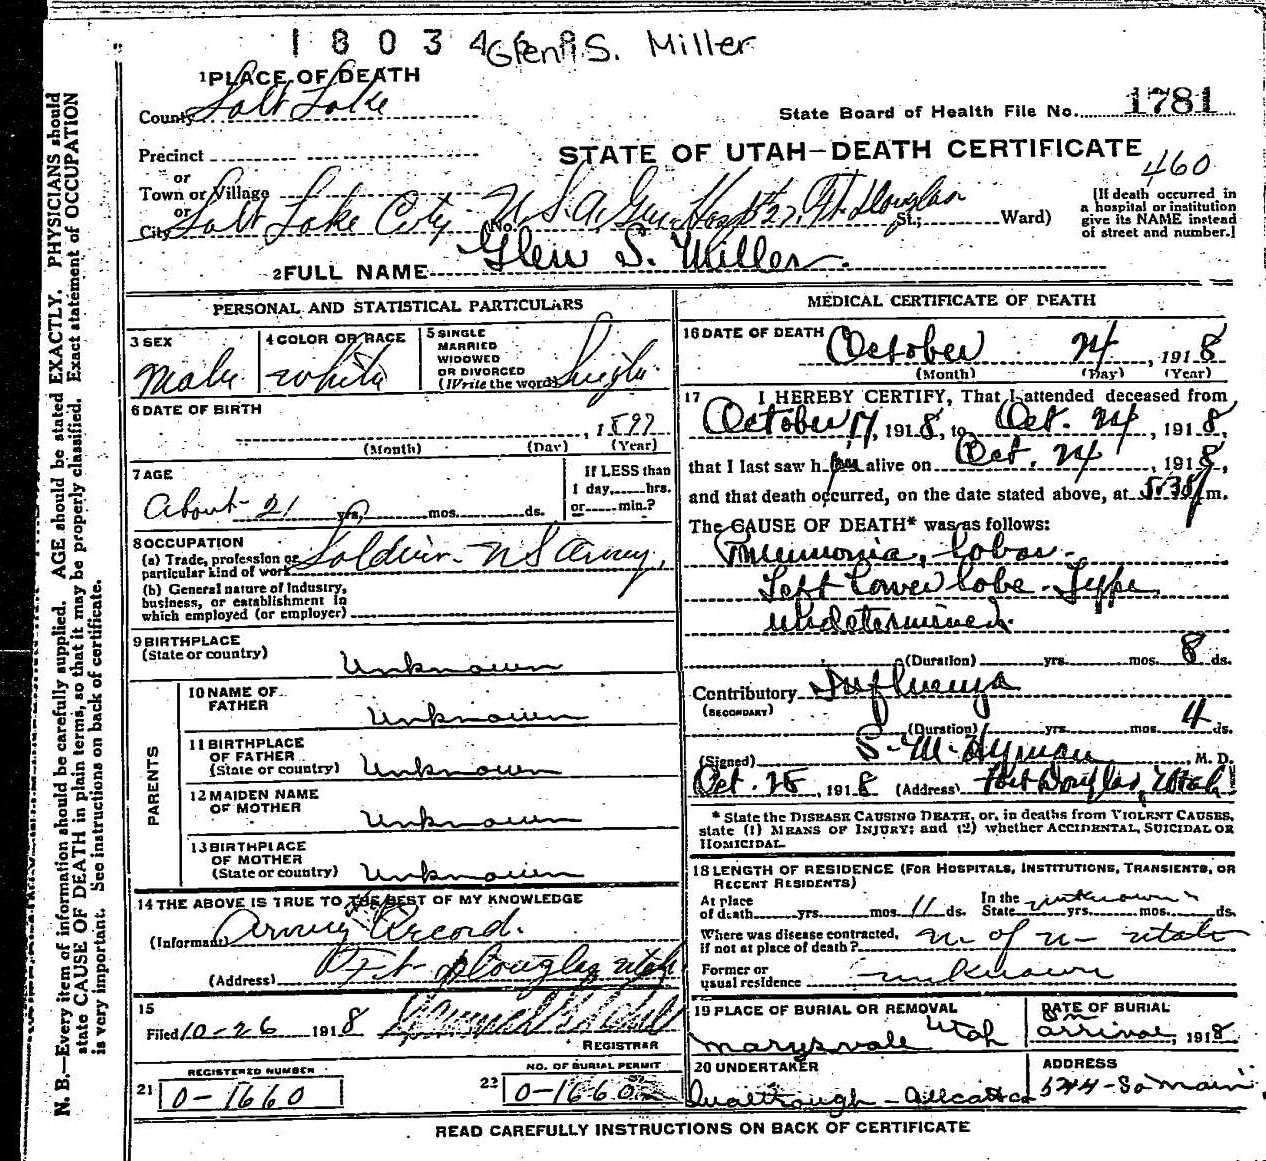 1 8 0 3 4 Glenn S. Miller
1 PLACE OF DEATH
County Salt Lake
State Board of Health File No. 1781
Precinct
or
Town or Village
or
City Salt Lake City No. U.S.A. Gen. Hospt 27, Ft Douglas St.; Ward)
STATE OF UTAH—DEATH CERTIFICATE
460
[If death occurred in
a hospital or institution
give its NAME instead
of street and number.]
2 FULL NAME Glen S. Miller.
PERSONAL AND STATISTICAL PARTICULARS
3 SEX
Male
4 COLOR OR RACE
White
5 SINGLE
MARRIED
WIDOWED
OR DIVORCED
(Write the word) Single
6 DATE OF BIRTH
, 1897
(Month) (Day) (Year)
7 AGE
About 21 yrs. mos. ds.
If LESS than
1 day, hrs.
or min.?
8 OCCUPATION
(a) Trade, profession or
particular kind of work Soldier - U S Army,
(b) General nature of Industry,
business, or establishment in
which employed (or employer)
9 BIRTHPLACE
(State or country)
Unknown
PARENTS
10 NAME OF
FATHER
Unknown
11 BIRTHPLACE
OF FATHER
(State or country) Unknown
12 MAIDEN NAME
OF MOTHER
Unknown
13 BIRTHPLACE
OF MOTHER
(State or country) Unknown
14 THE ABOVE IS TRUE TO THE BEST OF MY KNOWLEDGE
(Informant) Army Record.
(Address) Ft Douglas Utah
15
Filed 10-26 1918
REGISTRAR
REGISTERED NUMBER
21 0-1660
NO. OF BURIAL PERMIT
22 0-1660
MEDICAL CERTIFICATE OF DEATH
16 DATE OF DEATH October 24, 1918
(Month) (Day) (Year)
17 I HEREBY CERTIFY, That I attended deceased from
October 17, 1918, to Oct. 24, 1918,
that I last saw him alive on Oct. 24, 1918,
and that death occurred, on the date stated above, at 5:38 P m.
The CAUSE OF DEATH* was as follows:
Pneumonia, lobar -
Left lower lobe - Type
undetermined.
(Duration) yrs. mos. 8 ds.
Contributory Influenza
(SECONDARY)
(Duration) yrs. mos. 4 ds.
(Signed) S. M. Hyman, M. D.
Oct. 25, 1918 (Address) Fort Douglas, Utah
* State the DISEASE CAUSING DEATH, or, in deaths from VIOLENT CAUSES,
state (1) MEANS OF INJURY; and (2) whether ACCIDENTAL, SUICIDAL OR
HOMICIDAL.
18 LENGTH OF RESIDENCE (FOR HOSPITALS, INSTITUTIONS, TRANSIENTS, OR
RECENT RESIDENTS)
At place
of death yrs. mos. 11 ds. In the
State unknown yrs. mos. ds.
Where was disease contracted,
if not at place of death? U. of U - Utah
Former or
usual residence unknown
19 PLACE OF BURIAL OR REMOVAL
Marysvale Utah
DATE OF BURIAL
on
arrival, 1918
20 UNDERTAKER
ADDRESS
544-So Main
READ CAREFULLY INSTRUCTIONS ON BACK OF CERTIFICATE
N. B.—Every item of information should be carefully supplied. AGE should be stated EXACTLY. PHYSICIANS should
state CAUSE OF DEATH in plain terms, so that it may be properly classified. Exact statement of OCCUPATION
is very important. See instructions on back of certificate.